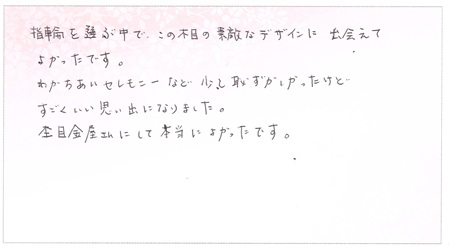 指輪を選ぶ中で、この木目の素敵なデザインに出会えて
よかったです。
わかちあいセレモニーなど少し恥ずかしかったけど
すごくいい思い出になりました。
杢目金屋さんにして本当によかったです。